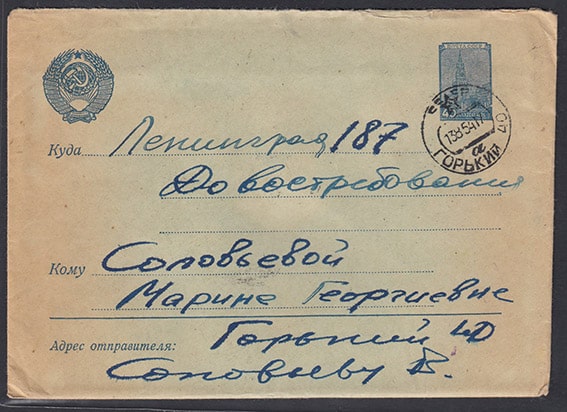 ПОЧТА СССР
40 КОПЕЕК
13854
ГОРЬКИЙ
Куда Ленинград 187
До востребования
Кому Соловьевой
Марине Георгиевне
Адрес отправителя: Горький
Соловьеву В.